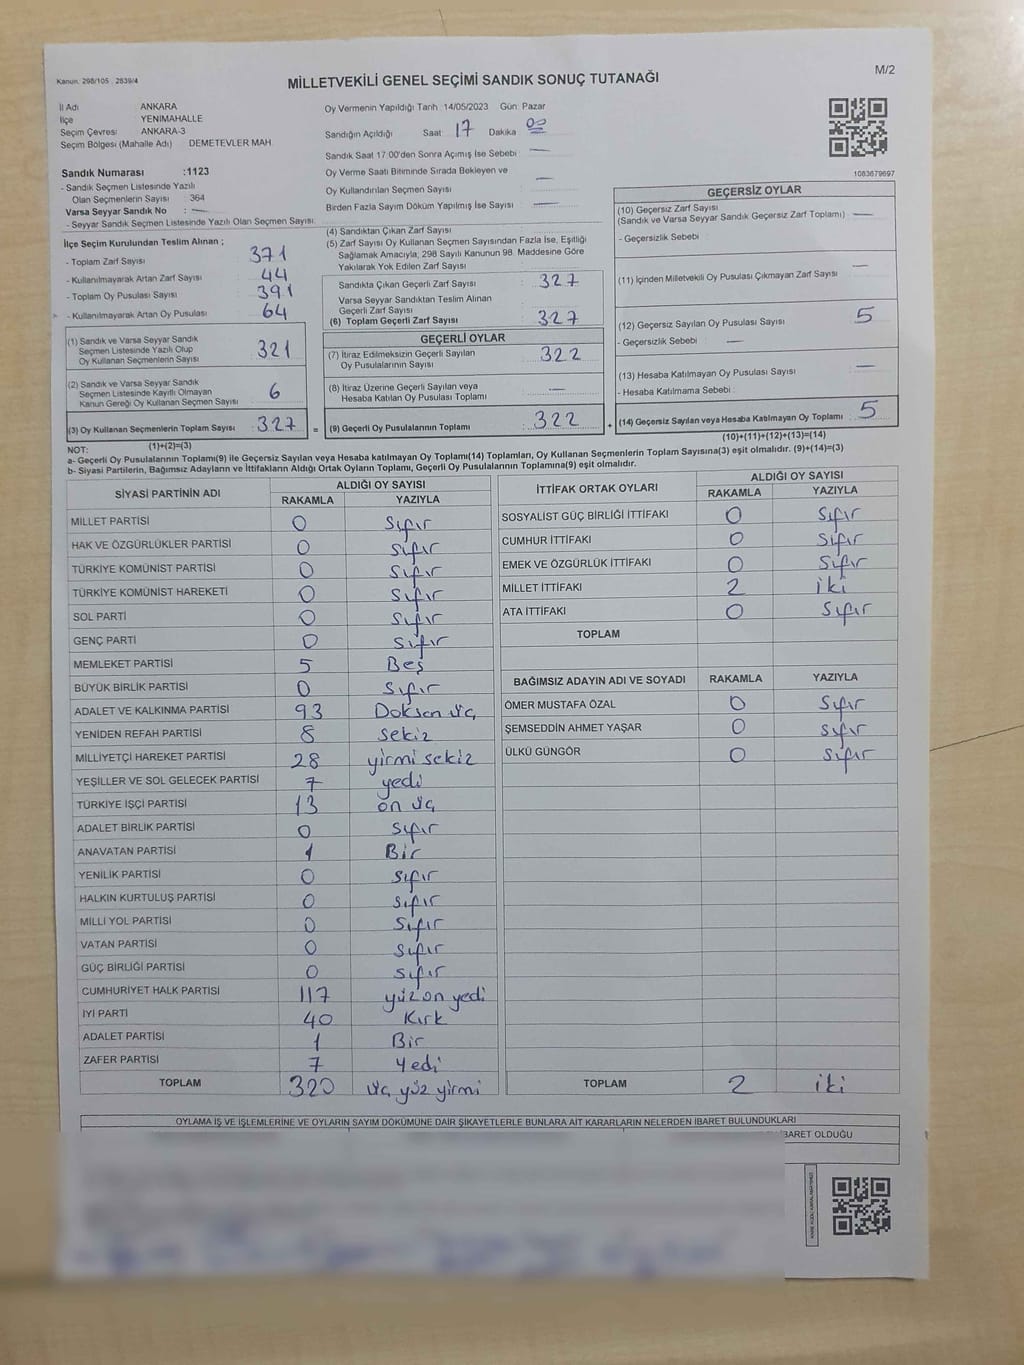 Kanun. 298/105 . 2839/4
M/2
MİLLETVEKİLİ GENEL SEÇİMİ SANDIK SONUÇ TUTANAĞI
İl Adı ANKARA
İlçe YENİMAHALLE
Seçim Çevresi ANKARA-3
Seçim Bölgesi (Mahalle Adı) DEMETEVLER MAH.
Oy Vermenin Yapıldığı Tarih 14/05/2023 Gün: Pazar
Sandığın Açıldığı Saat: 17 Dakika 00
Sandık Saat 17:00'den Sonra Açımış İse Sebebi : —
Oy Verme Saati Bitiminde Sırada Bekleyen ve
Oy Kullandırılan Seçmen Sayısı —
Birden Fazla Sayım Döküm Yapılmış İse Sayısı : —
1083679697
Sandık Numarası :1123
- Sandık Seçmen Listesinde Yazılı
Olan Seçmenlerin Sayısı : 364
Varsa Seyyar Sandık No : —
- Seyyar Sandık Seçmen Listesinde Yazılı Olan Seçmen Sayısı:
İlçe Seçim Kurulundan Teslim Alınan ;
- Toplam Zarf Sayısı 371
- Kullanılmayarak Artan Zarf Sayısı 44
- Toplam Oy Pusulası Sayısı 391
- Kullanılmayarak Artan Oy Pusulası 64
(1) Sandık ve Varsa Seyyar Sandık
Seçmen Listesinde Yazılı Olup
Oy Kullanan Seçmenlerin Sayısı 321
(2) Sandık ve Varsa Seyyar Sandık
Seçmen Listesinde Kayıtlı Olmayan
Kanun Gereği Oy Kullanan Seçmen Sayısı 6
(3) Oy Kullanan Seçmenlerin Toplam Sayısı : 327 =
(1)+(2)=(3)
(4) Sandıktan Çıkan Zarf Sayısı
(5) Zarf Sayısı Oy Kullanan Seçmen Sayısından Fazla İse, Eşitliği
Sağlamak Amacıyla, 298 Sayılı Kanunun 98. Maddesine Göre
Yakılarak Yok Edilen Zarf Sayısı
Sandıkta Çıkan Geçerli Zarf Sayısı : 327
Varsa Seyyar Sandıktan Teslim Alınan
Geçerli Zarf Sayısı
(6) Toplam Geçerli Zarf Sayısı : 327
GEÇERLİ OYLAR
(7) İtiraz Edilmeksizin Geçerli Sayılan
Oy Pusulalarının Sayısı : 322
(8) İtiraz Üzerine Geçerli Sayılan veya
Hesaba Katılan Oy Pusulası Toplamı —
(9) Geçerli Oy Pusulalarının Toplamı : 322 +
GEÇERSİZ OYLAR
(10) Geçersiz Zarf Sayısı
(Sandık ve Varsa Seyyar Sandık Geçersiz Zarf Toplamı) —
- Geçersizlik Sebebi :
(11) İçinden Milletvekili Oy Pusulası Çıkmayan Zarf Sayısı —
(12) Geçersiz Sayılan Oy Pusulası Sayısı 5
- Geçersizlik Sebebi : —
(13) Hesaba Katılmayan Oy Pusulası Sayısı —
- Hesaba Katılmama Sebebi :
(14) Geçersiz Sayılan veya Hesaba Katılmayan Oy Toplamı : 5
(10)+(11)+(12)+(13)=(14)
NOT:
a- Geçerli Oy Pusulalarının Toplamı(9) ile Geçersiz Sayılan veya Hesaba katılmayan Oy Toplamı(14) Toplamları, Oy Kullanan Seçmenlerin Toplam Sayısına(3) eşit olmalıdır. (9)+(14)=(3)
b- Siyasi Partilerin, Bağımsız Adayların ve İttifakların Aldığı Ortak Oyların Toplamı, Geçerli Oy Pusulalarının Toplamına(9) eşit olmalıdır.
SİYASİ PARTİNİN ADI ALDIĞI OY SAYISI
RAKAMLA YAZIYLA
MİLLET PARTİSİ 0 Sıfır
HAK VE ÖZGÜRLÜKLER PARTİSİ 0 sıfır
TÜRKİYE KOMÜNİST PARTİSİ 0 Sıfır
TÜRKİYE KOMÜNİST HAREKETİ 0 Sıfır
SOL PARTİ 0 sıfır
GENÇ PARTİ 0 sıfır
MEMLEKET PARTİSİ 5 Beş
BÜYÜK BİRLİK PARTİSİ 0 Sıfır
ADALET VE KALKINMA PARTİSİ 93 Doksan üç
YENİDEN REFAH PARTİSİ 8 sekiz
MİLLİYETÇİ HAREKET PARTİSİ 28 yirmi sekiz
YEŞİLLER VE SOL GELECEK PARTİSİ 7 yedi
TÜRKİYE İŞÇİ PARTİSİ 13 on üç
ADALET BİRLİK PARTİSİ 0 Sıfır
ANAVATAN PARTİSİ 1 Bir
YENİLİK PARTİSİ 0 sıfır
HALKIN KURTULUŞ PARTİSİ 0 sıfır
MİLLİ YOL PARTİSİ 0 Sıfır
VATAN PARTİSİ 0 Sıfır
GÜÇ BİRLİĞİ PARTİSİ 0 sıfır
CUMHURİYET HALK PARTİSİ 117 yüz on yedi
İYİ PARTİ 40 Kırk
ADALET PARTİSİ 1 Bir
ZAFER PARTİSİ 7 Yedi
TOPLAM 320 üç yüz yirmi
İTTİFAK ORTAK OYLARI ALDIĞI OY SAYISI
RAKAMLA YAZIYLA
SOSYALİST GÜÇ BİRLİĞİ İTTİFAKI 0 Sıfır
CUMHUR İTTİFAKI 0 Sıfır
EMEK VE ÖZGÜRLÜK İTTİFAKI 0 Sıfır
MİLLET İTTİFAKI 2 iki
ATA İTTİFAKI 0 Sıfır
TOPLAM
BAĞIMSIZ ADAYIN ADI VE SOYADI RAKAMLA YAZIYLA
ÖMER MUSTAFA ÖZAL 0 Sıfır
ŞEMSEDDİN AHMET YAŞAR 0 sıfır
ÜLKÜ GÜNGÖR 0 sıfır
TOPLAM 2 iki
OYLAMA İŞ VE İŞLEMLERİNE VE OYLARIN SAYIM DÖKÜMÜNE DAİR ŞİKAYETLERLE BUNLARA AİT KARARLARIN NELERDEN İBARET BULUNDUKLARI
İBARET OLDUĞU